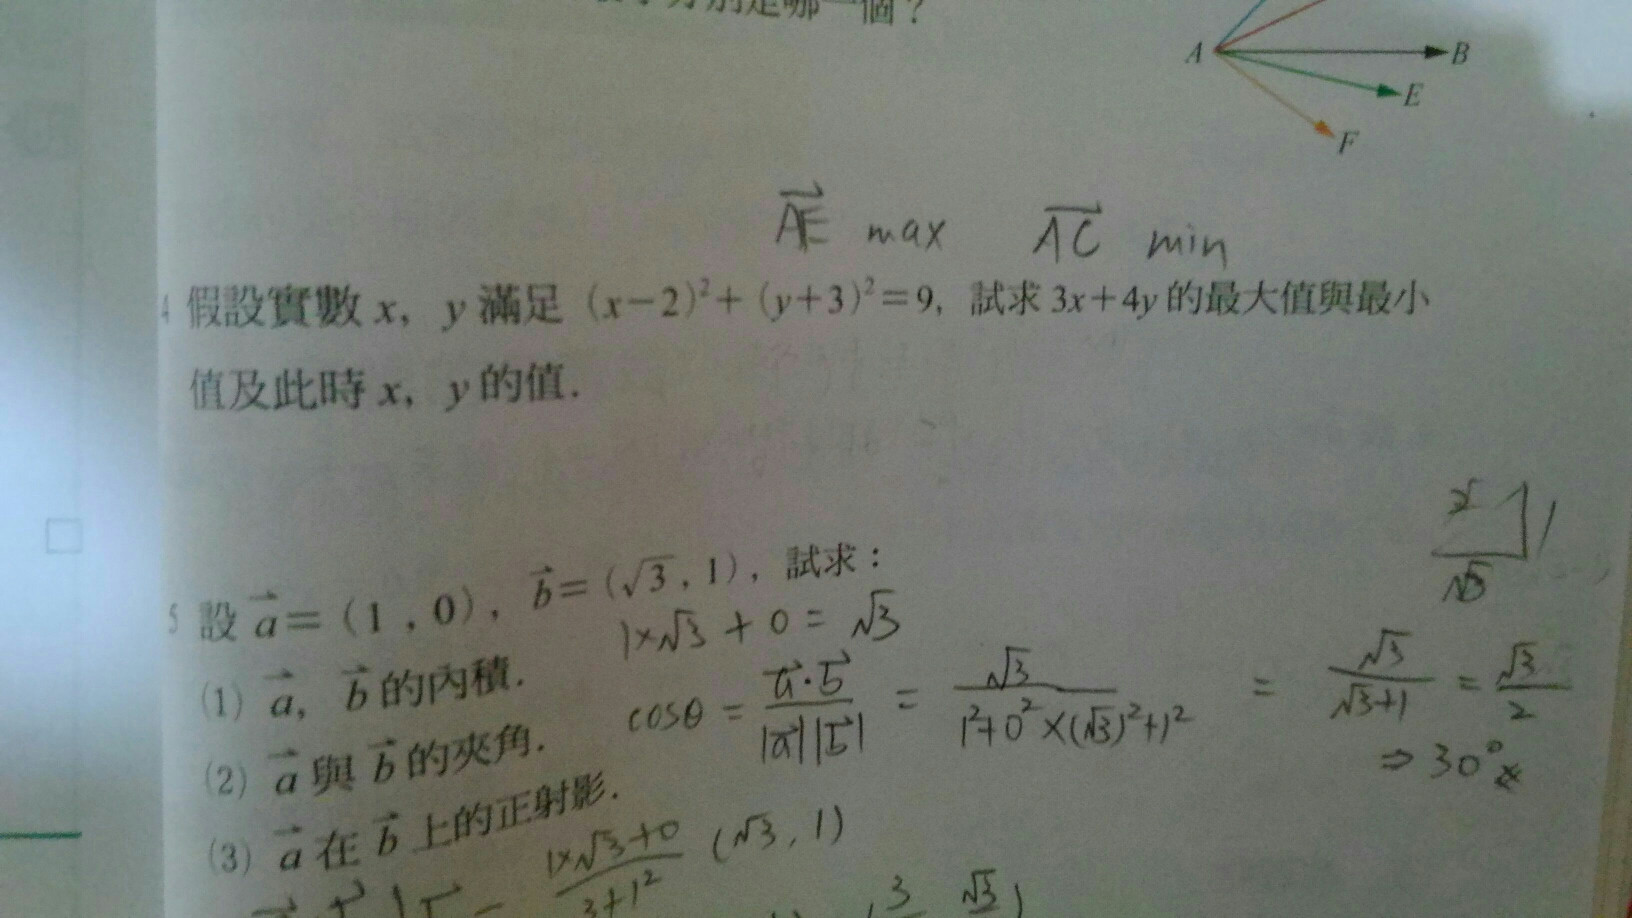 哪一個？
A
B
E
F
AE max AC min
4 假設實數 x, y 滿足 (x−2)²+(y+3)²=9, 試求 3x+4y 的最大值與最小
值及此時 x, y 的值.
2 1
√3
5 設 a=(1,0), b=(√3,1), 試求：
1×√3 + 0 = √3
(1) a, b 的內積.
cosθ = a·b / |a||b| = √3 / 1²+0²×(√3)²+1² = √3 / √3+1 = √3 / 2
(2) a 與 b 的夾角.
⇒ 30°
(3) a 在 b 上的正射影.
1×√3+0 / 3+1² (√3, 1)
3 √3